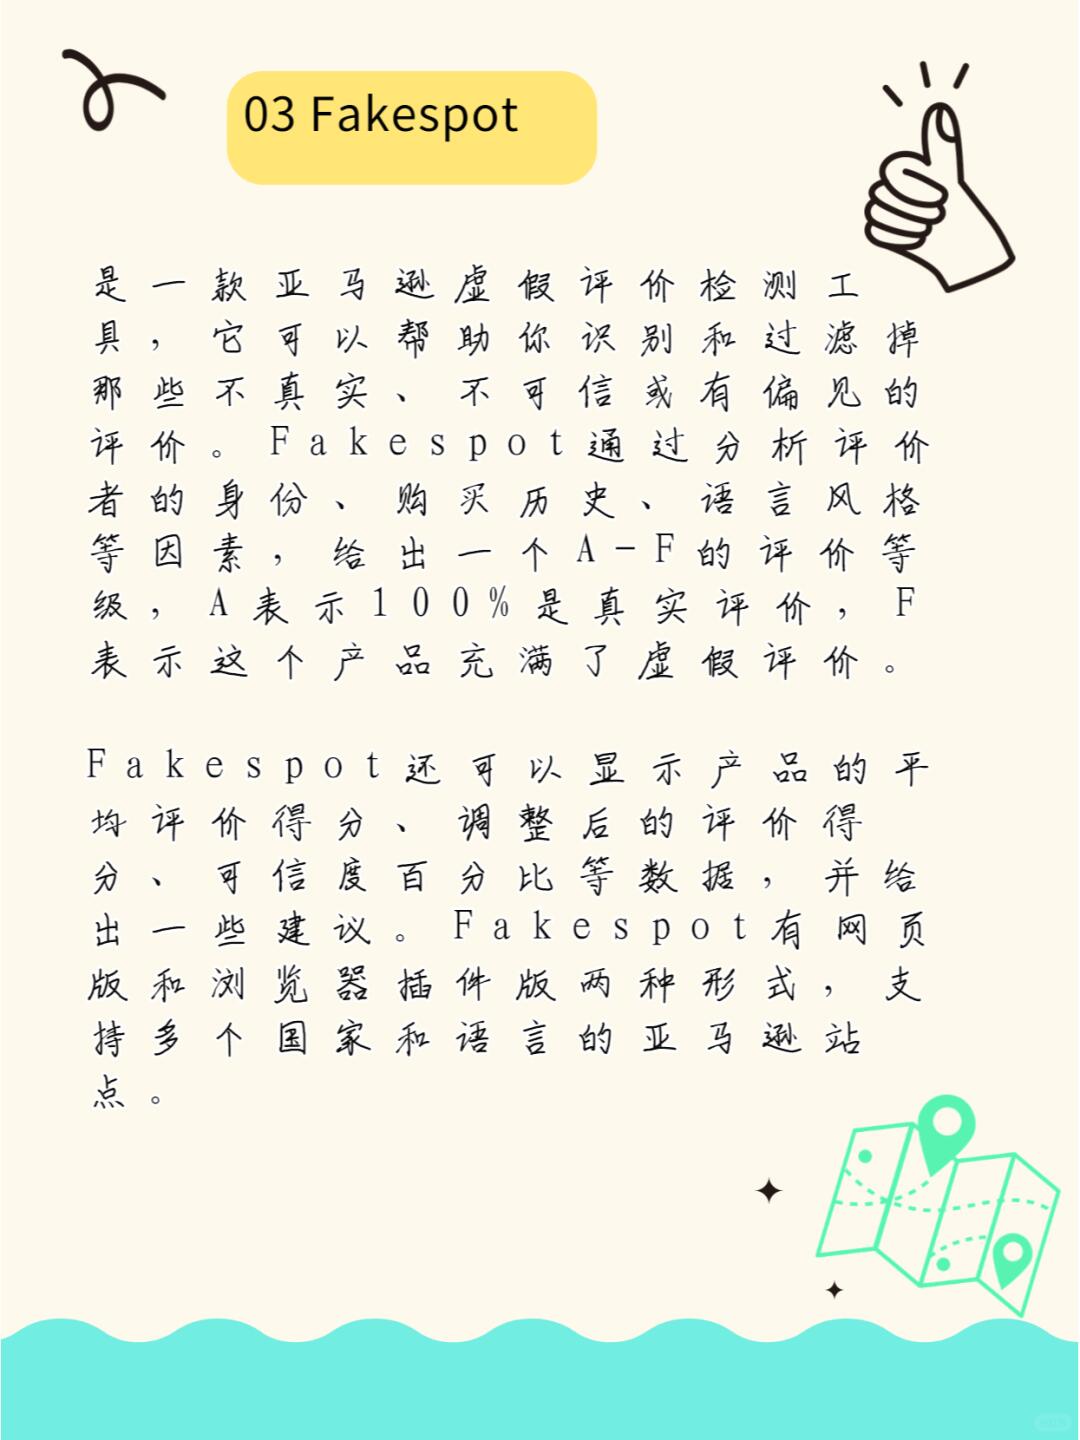 03 Fakespot
是一款亚马逊虚假评价检测工
具，它可以帮助你识别和过滤掉
那些不真实、不可信或有偏见的
评价。Fakespot通过分析评价
者的身份、购买历史、语言风格
等因素，给出一个A-F的评价等
级，A表示100%是真实评价，F
表示这个产品充满了虚假评价。
Fakespot还可以显示产品的平
均评价得分、调整后的评价得
分、可信度百分比等数据，并给
出一些建议。Fakespot有网页
版和浏览器插件版两种形式，支
持多个国家和语言的亚马逊站
点。